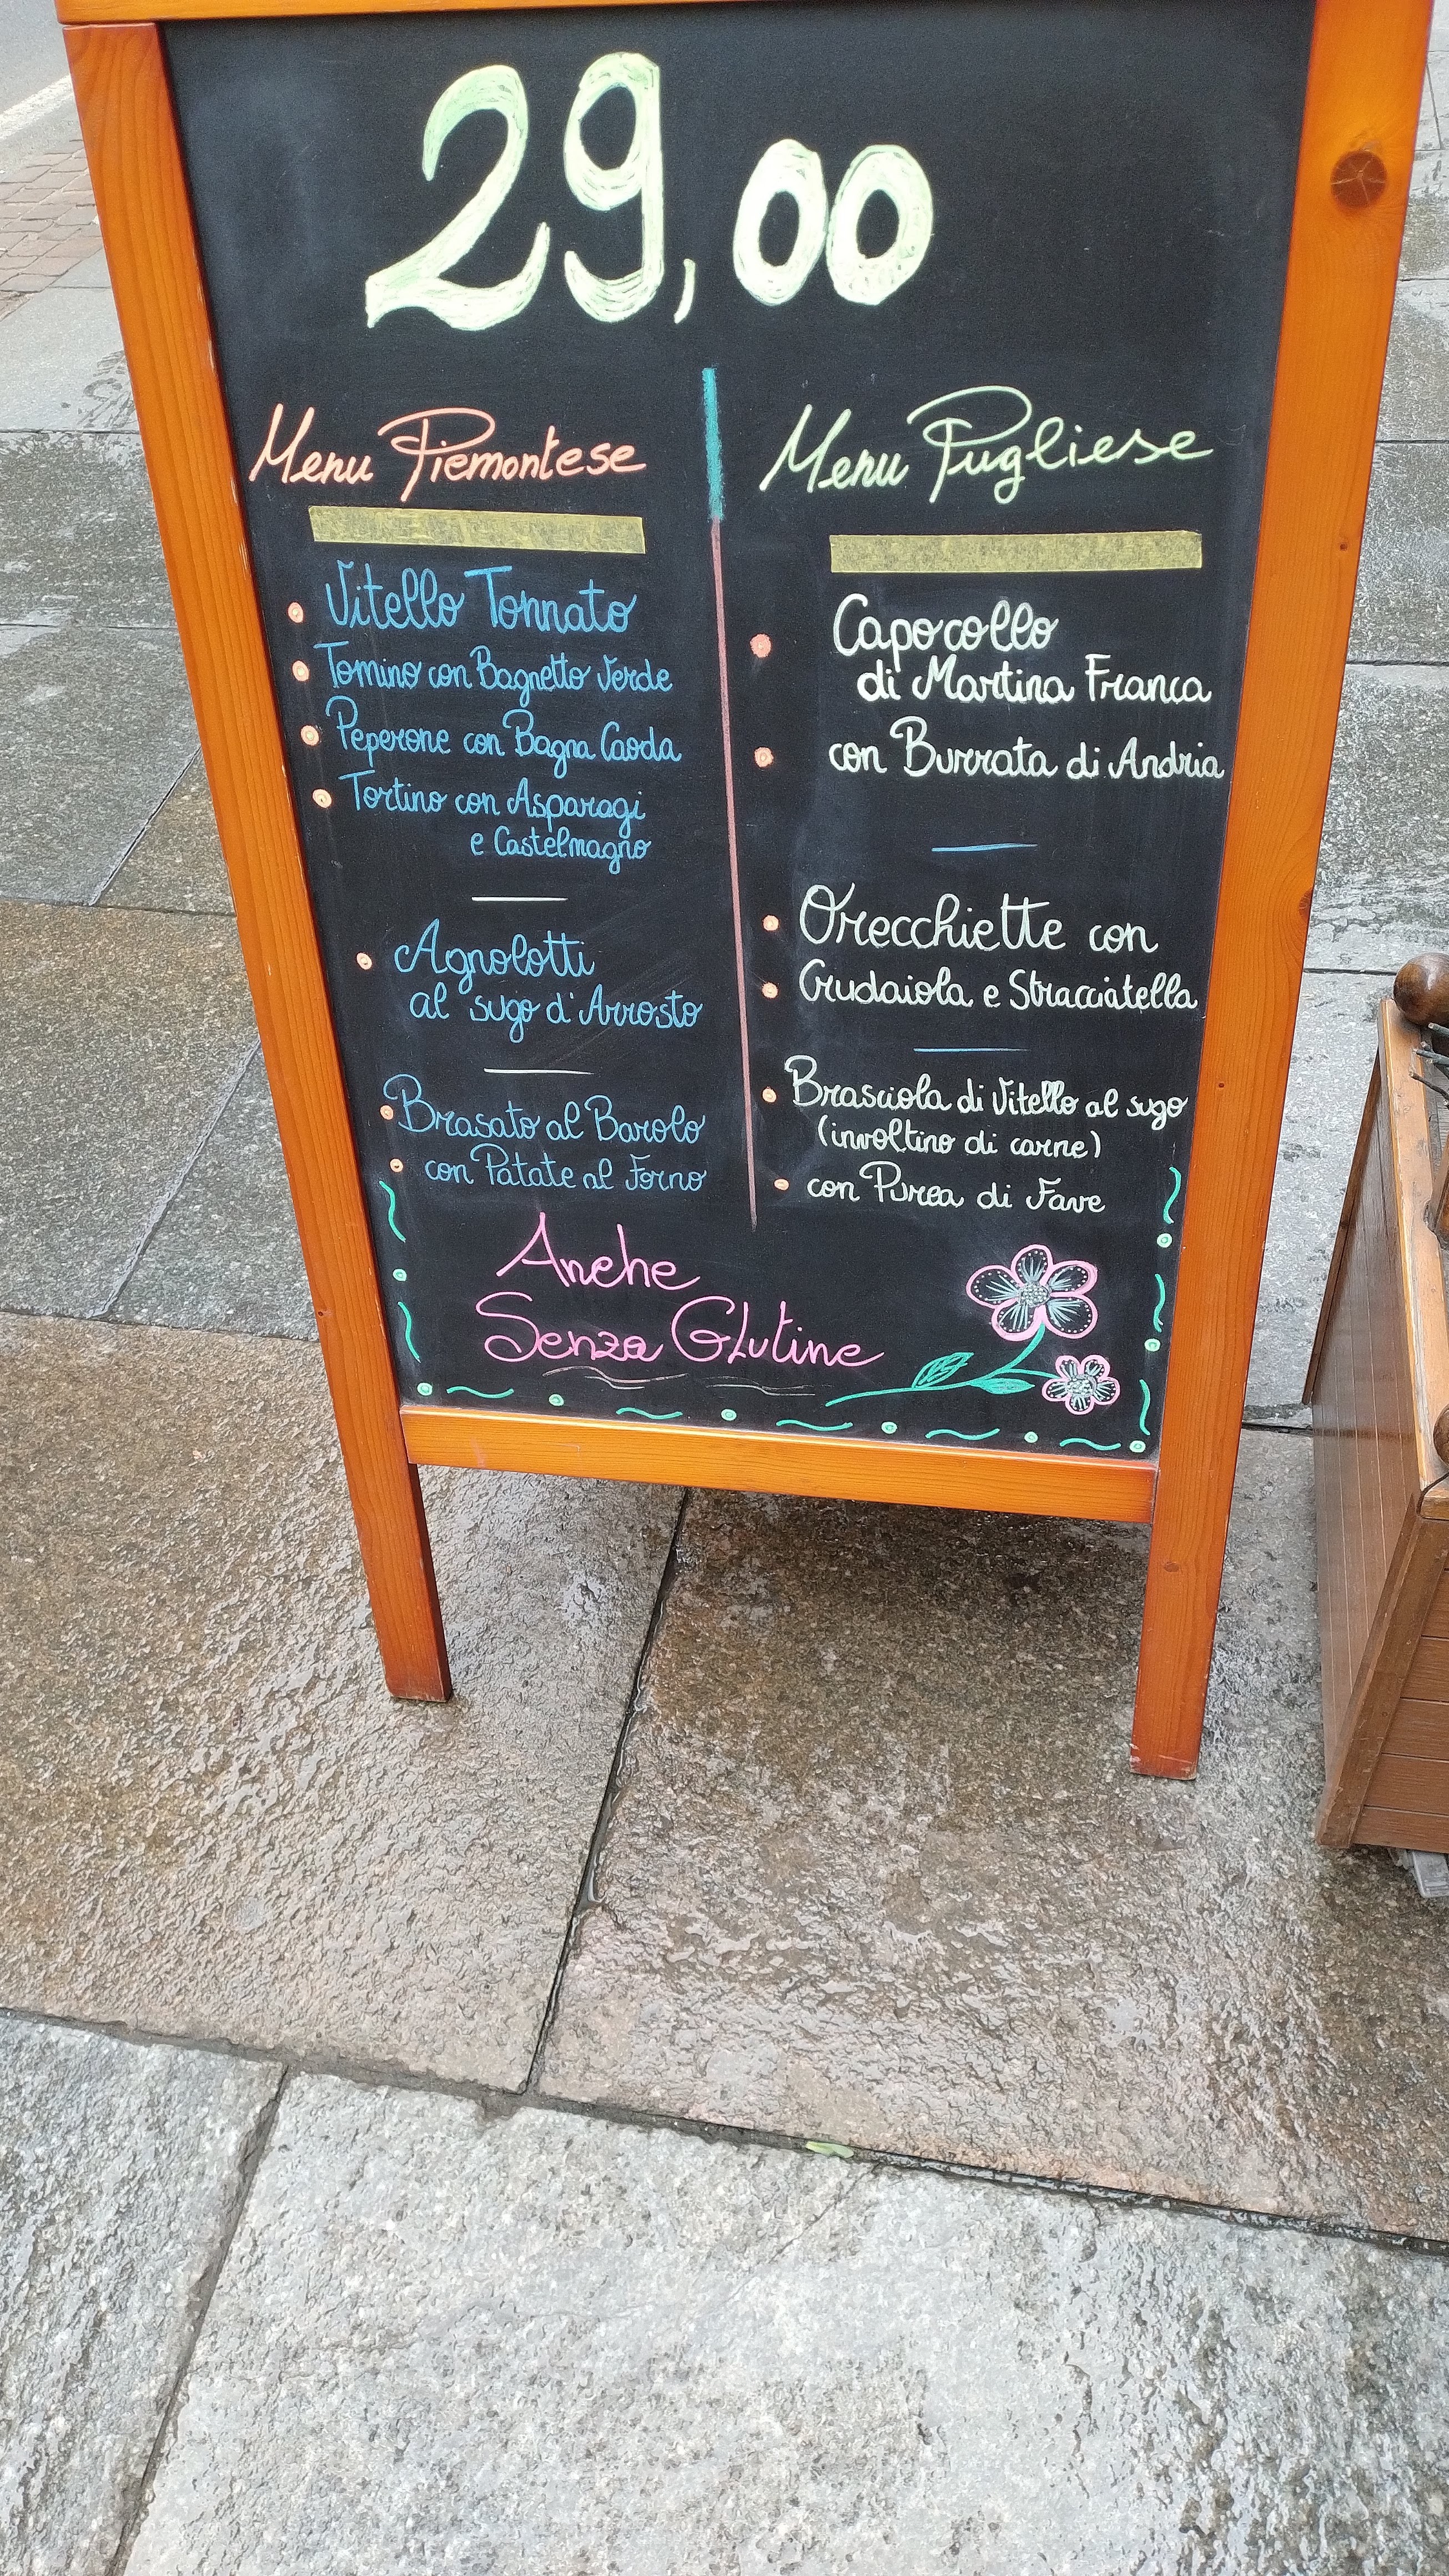 29,00
Menu Piemontese
Vitello Tonnato
Tomino con Bagnetto Verde
Peperone con Bagna Caoda
Tortino con Asparagi
e Castelmagno
Agnolotti
al sugo d'Arrosto
Brasato al Barolo
con Patate al Forno
Menu Pugliese
Capocollo
di Martina Franca
con Burrata di Andria
Orecchiette con
Crudaiola e Stracciatella
Brasciola di Vitello al sugo
(involtino di carne)
con Purea di Fave
Anche
Senza Glutine